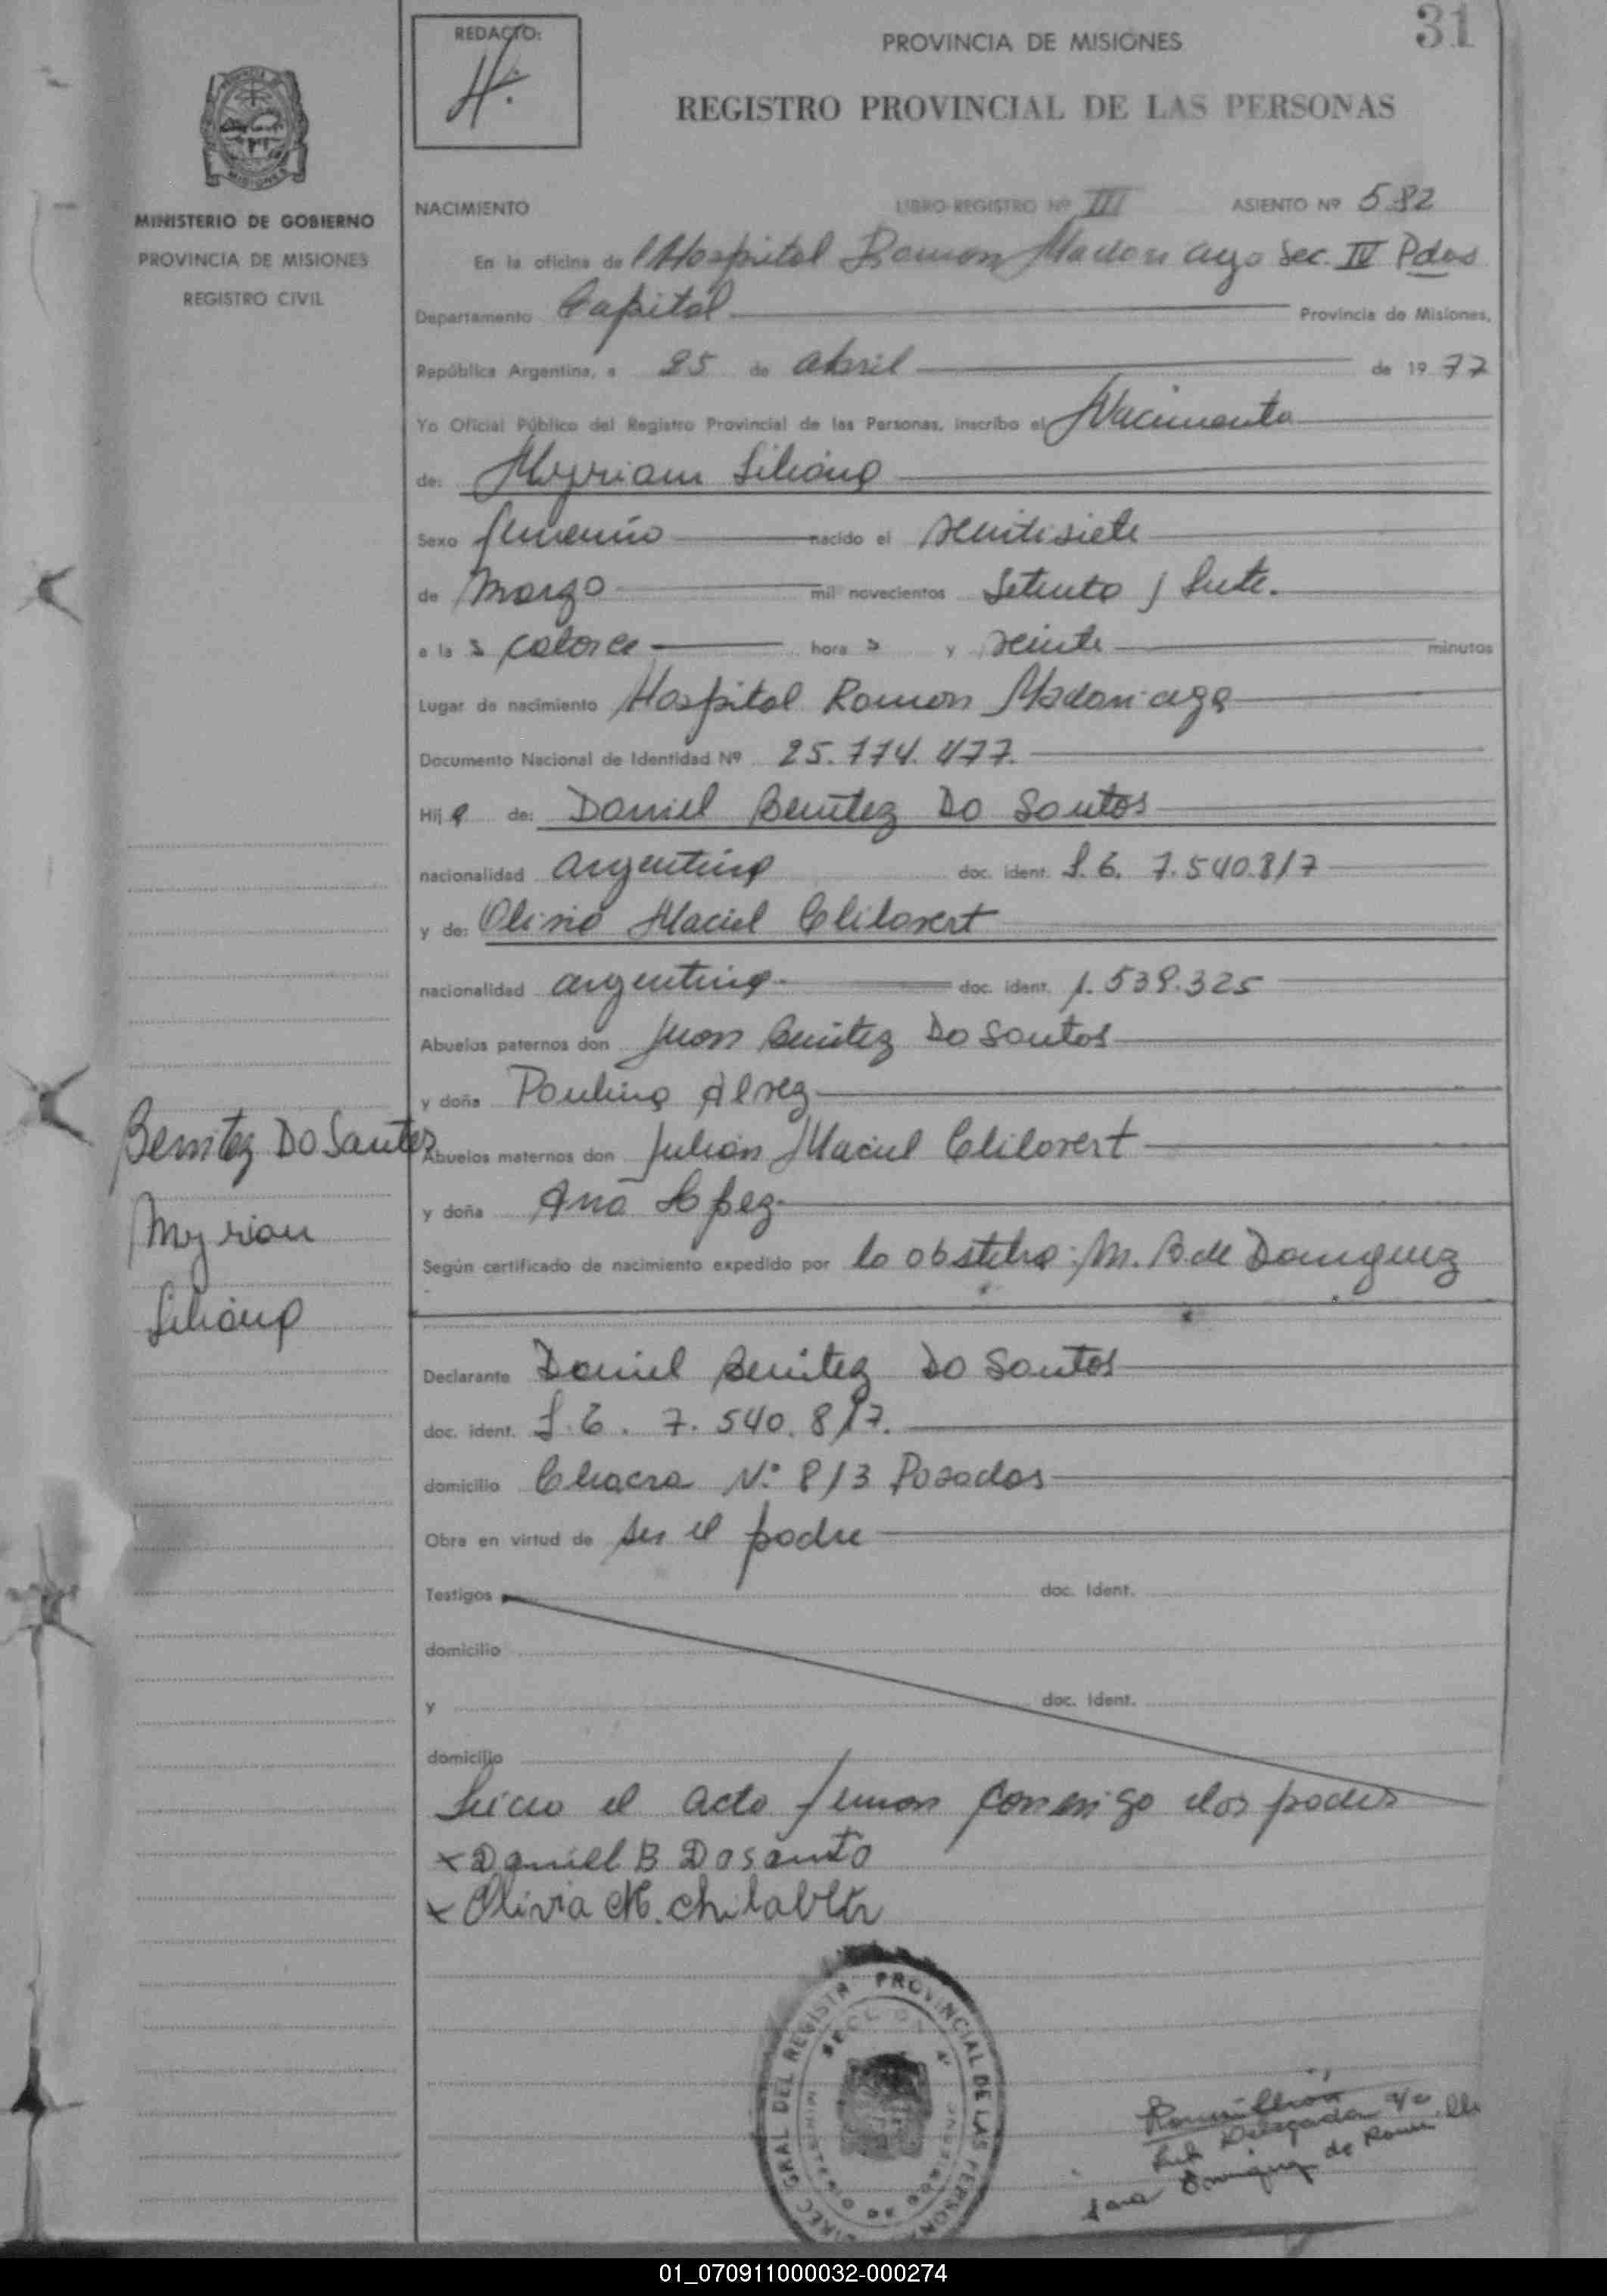 REDACTO:
PROVINCIA DE MISIONES
31
REGISTRO PROVINCIAL DE LAS PERSONAS
MINISTERIO DE GOBIERNO
PROVINCIA DE MISIONES
REGISTRO CIVIL
NACIMIENTO LIBRO REGISTRO Nº III ASIENTO Nº 582
En la oficina de Hospital Ramon Madariaga Sec. IV Pdas
Departamento Capital Provincia de Misiones,
República Argentina, a 25 de abril de 1977
Yo Oficial Público del Registro Provincial de las Personas, inscribo el Nacimiento
de: Myriam Liliana
Sexo femenino nacido el veintisiete
de Marzo mil novecientos Setenta y Siete.
a las catorce horas y veinte minutos
Lugar de nacimiento Hospital Ramon Madariaga
Documento Nacional de Identidad Nº 25.774.477.
Hija de: Daniel Benitez Do Santos
nacionalidad argentina doc. ident. L.E. 7.540.817
y de: Olivia Maciel Chilavert
nacionalidad argentina doc. ident. 1.539.325
Abuelos paternos don Juan Benitez Do Santos
y doña Paulina Alvez
Abuelos maternos don Julian Maciel Chilavert
y doña Ana Lopez
Según certificado de nacimiento expedido por la obstetra: M. B. de Dominguez
Benitez Do Santos
Myrian
Liliana
Declarante Daniel Benitez Do Santos
doc. ident. L.E. 7.540.817.
domicilio Chacra N.º 813 Posadas
Obra en virtud de ser el padre
Testigos doc. Ident.
domicilio
y doc. Ident.
domicilio
el acto firman conmigo los padres
x Daniel B Dosanto
x Olivia M.
DIREC GRAL DEL REGISTR PROVINCIAL DE LAS PERSONA
SECCION 4
Sub Delegada a/c
Sara Dominguez de
01_070911000032-000274